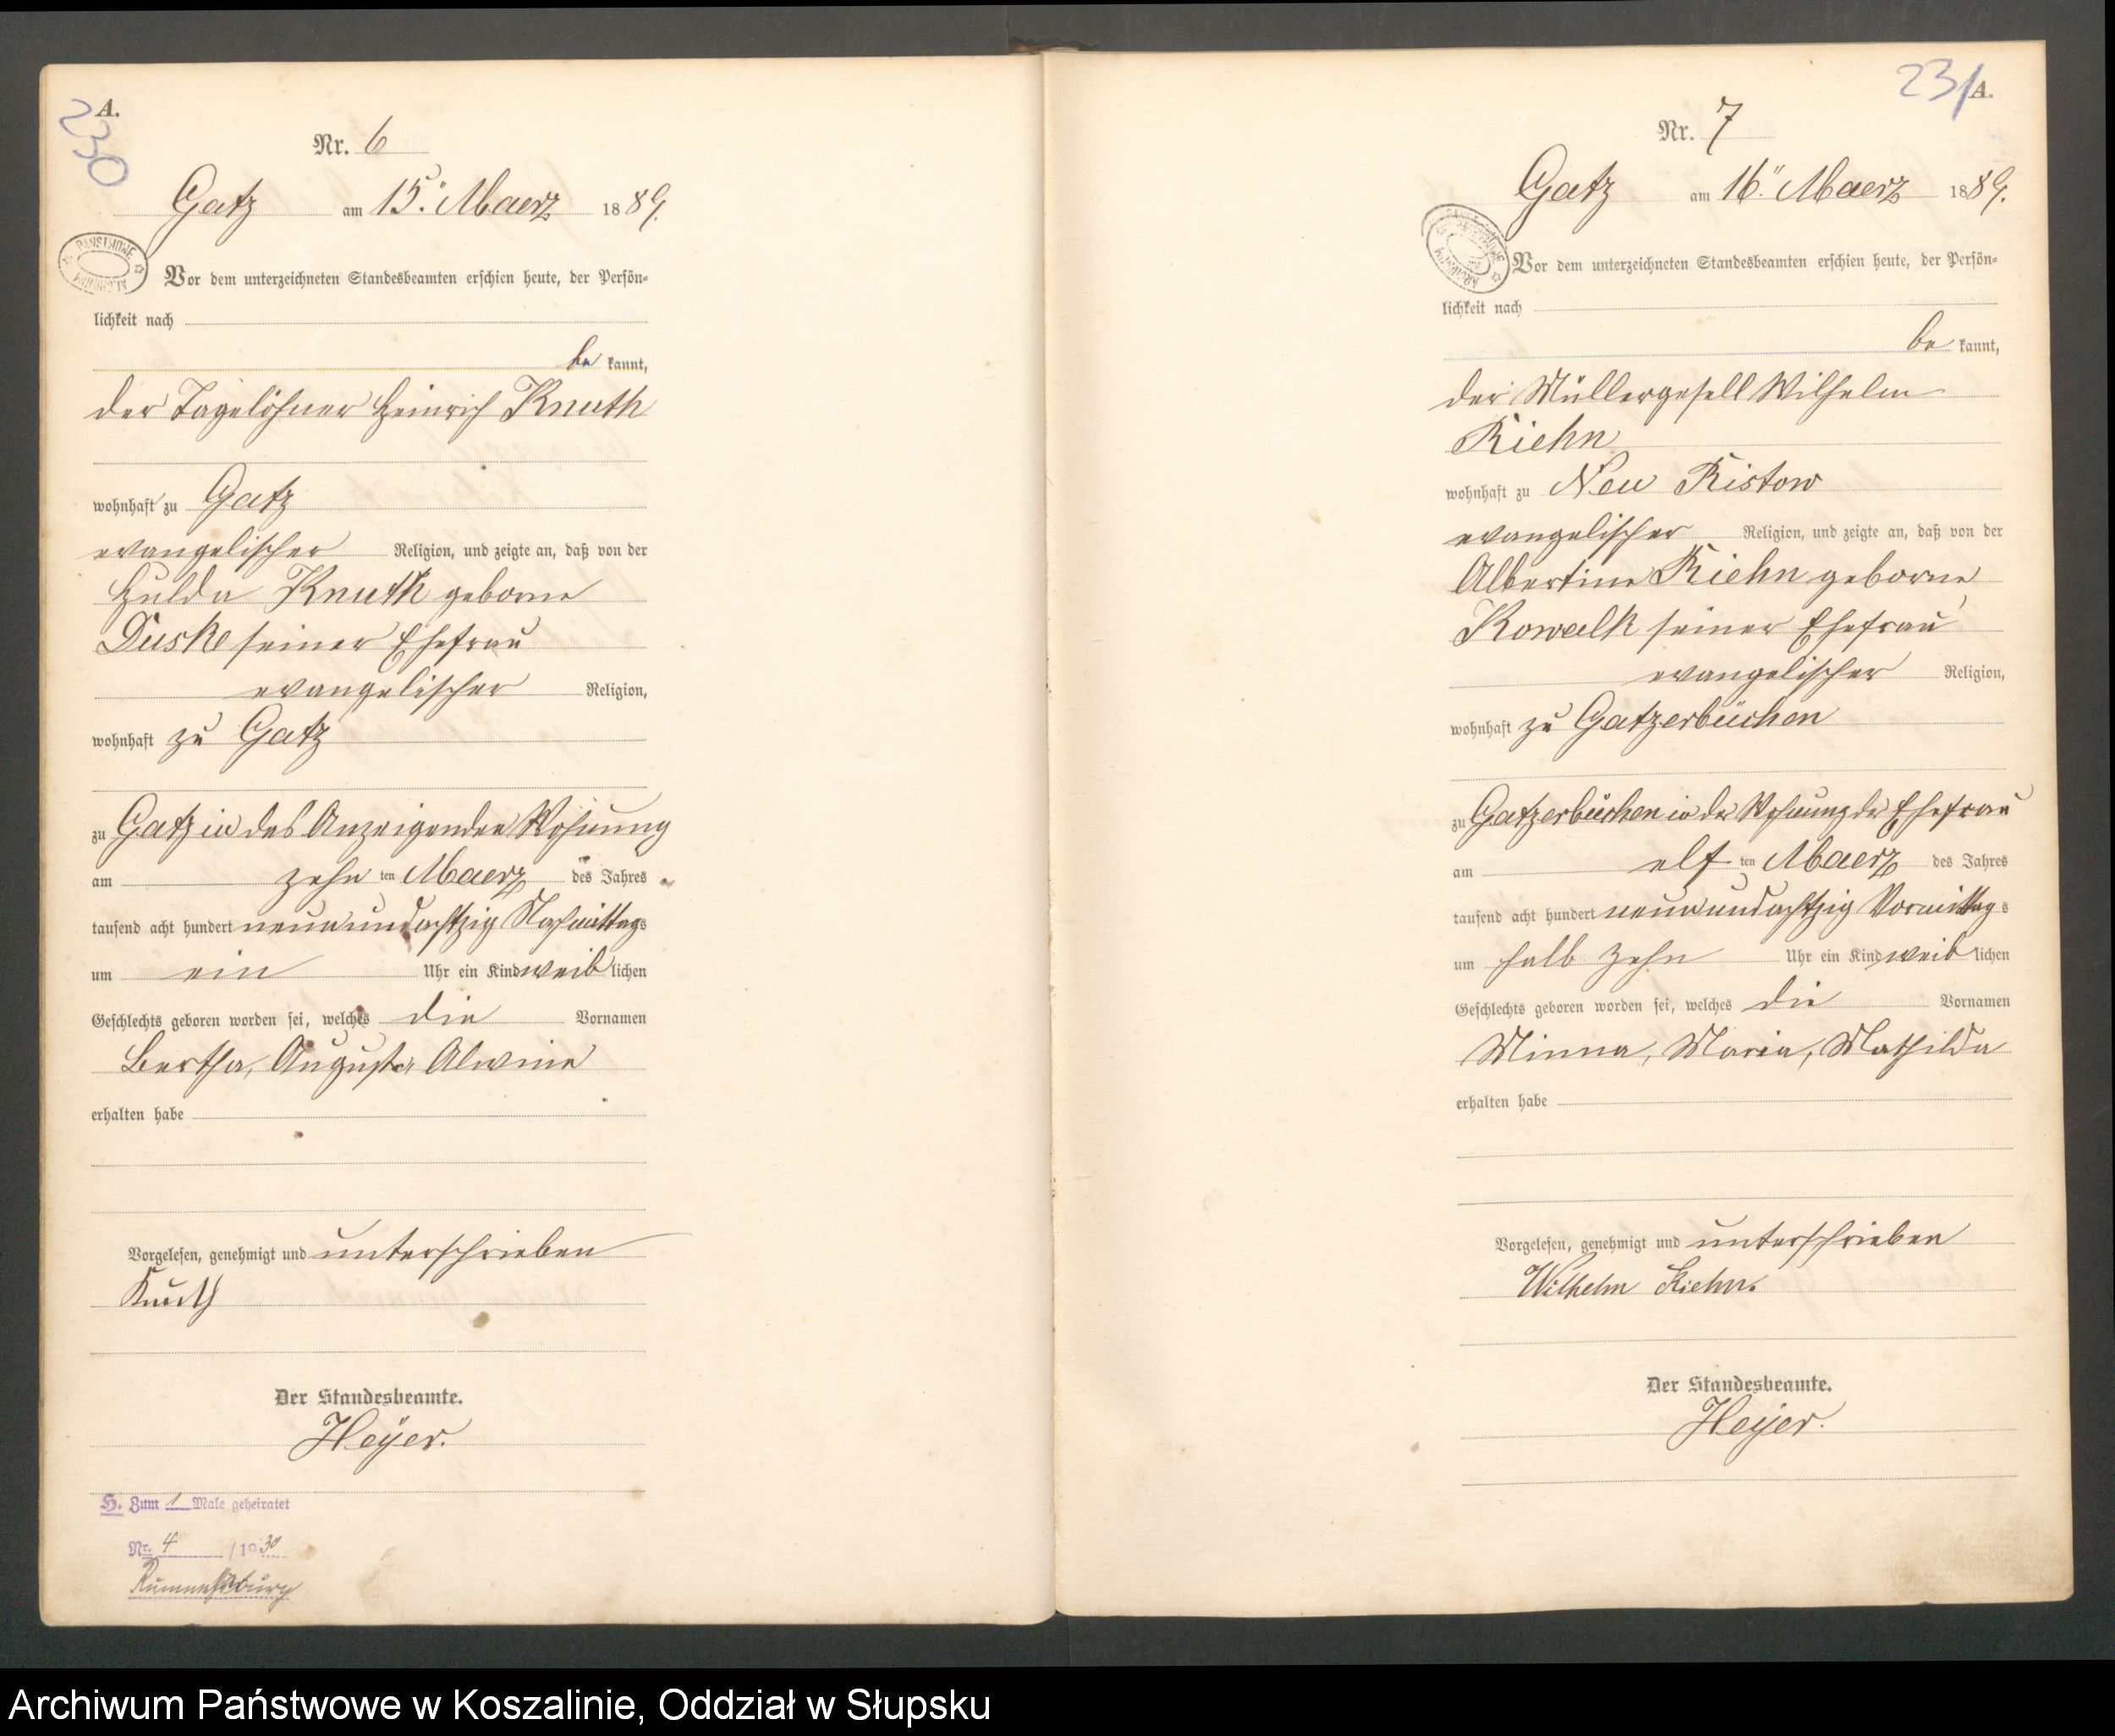 A.
230
Nr. 6
Gatz am 15ten Maerz 1889.
PAŃSTWOWE
Vor dem unterzeichneten Standesbeamten erschien heute, der Persön-
lichkeit nach
be kannt,
der Tagelöhner Heinrich Knuth
wohnhaft zu Gatz
evangelischer Religion, und zeigte an, daß von der
Hulda Knuth geborne
Duske seiner Ehefrau
evangelischer Religion,
wohnhaft zu Gatz
zu Gatz in des Anzeigenden Wohnung
am zehn ten Maerz des Jahres
tausend acht hundert neunundachtzig Nachmittags
um ein Uhr ein Kind weiblichen
Geschlechts geboren worden sei, welches die Vornamen
Bertha, Auguste, Alwine
erhalten habe
Vorgelesen, genehmigt und unterschrieben
Knuth
Der Standesbeamte.
Heyer.
H. Zum 1 Male geheiratet
Nr. 4 /1930
Rummelsburg
231
A.
Nr. 7
Gatz am 16ten Maerz 1889.
Vor dem unterzeichneten Standesbeamten erschien heute, der Persön-
lichkeit nach
be kannt,
der Müllergesell Wilhelm
Kiehn
wohnhaft zu Neu Ristow
evangelischer Religion, und zeigte an, daß von der
Albertine Kiehn geborne
Kowalk seiner Ehefrau
evangelischer Religion,
wohnhaft zu Gatzerbüchen
zu Gatzerbüchen in der Wohnung der Ehefrau
am elf ten Maerz des Jahres
tausend acht hundert neunundachtzig Vormittags
um halb zehn Uhr ein Kind weiblichen
Geschlechts geboren worden sei, welches die Vornamen
Minna, Maria, Mathilda
erhalten habe
Vorgelesen, genehmigt und unterschrieben
Wilhelm Kiehn.
Der Standesbeamte.
Heyer.
Archiwum Państwowe w Koszalinie, Oddział w Słupsku